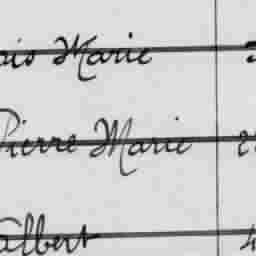 Marie
Pierre Marie
Albert